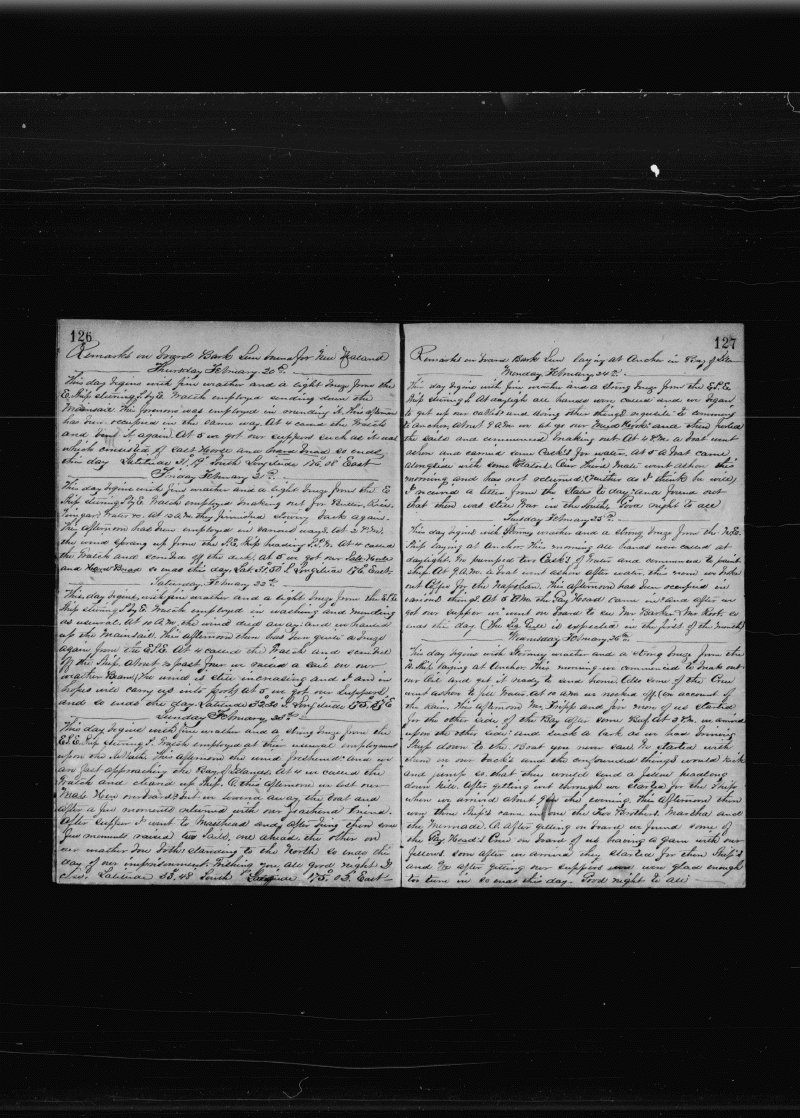 126
Remarks on board Bark Sun bound for New Zealand
Thursday February 20th
This day begins with fine weather and a light breeze from the
E. Ship steering S by E. Watch employed sending down the
Mainsail. This forenoon was employed in mending it. This afternoon
has been occupied in the same way. At 4 called the Watch
and bent it again. At 5 we got our suppers such as it was
which consisted of Salt Horse and hard bread so ends
this day. Latitude 31°, 19 South Longitude 176° 08 East
Friday February 21st
This day begins with fine weather and a light breeze from the E
Ship steering S by E. Watch employed breaking out for Rice,
Vinegar, &c. At 10 A.M. they finished stowing back again.
The afternoon has been employed in various ways. At 3 P.M.
the wind sprang up from the S.E. Ship heading At 4 called
the Watch and scrubbed off the deck. at 5 we got our Salt Horse
and Hard Bread so ends this day. Lat 31° 58 S. Longitude 176 East
Saturday February 22nd
This day begins with fine weather and a light breeze from the E.S.E
Ship steering S by E. Watch employed in washing and mending
as usual. At 10 A.M. the wind died away: and we hauled
up the Mainsail. This afternoon there has been quite a breeze
again from the E.S.E. At 4 called the Watch and scrubbed
off the Ship. About ½ past four we raised a sail on our
weather Beam. The wind is still increasing and I am in
hopes will carry us into port. At 5 we got our suppers
and so ends the day. Latitude 32° 20 S. Longitude 175°, 57 E
Sunday February 23rd
This day begins with fine weather and a strong breeze from the
E.S.E. Ship steering S. Watch employed at their usual employment
upon the Sabbath. This afternoon the wind freshened: and we
are fast approaching the Bay of Islands. At 4 we called the
Watch and cleaned up Ship. This afternoon we lost our
Mate's Hen overboard: and we lowered away the boat and
after a few moments returned with our feathered friend.
After supper I went to Masthead and after being there some
few moments raised two Sails, one ahead the other on
our weather Bow both standing to the North so ends the
day of our imprisonment. Wishing you all good night I
close. Latitude 33°, 48 South Longitude 175°, 03, East
127
Remarks on board Bark Sun laying at Anchor in Bay of Islds
Monday February 24th
This day begins with fine weather and a strong breeze from the E.S.E.
Ship steering S. At daylight all hands were called and we began
to get up our cables and doing other things requisite to coming
to anchor. About 9 A.M. we let go our Mud Hook: and then furled
the sails and commenced breaking out. At 4 P.M. a boat went
ashore and carried some Casks for water. At 5 a boat came
alongside with some Our Third Mate went ashore this
morning and has not returned. (Neither do I think he will)
I received a letter from the States to day: and found out
that there was still War in the South. Good night to all
Tuesday February 25th
This day begins with Stormy weather and a strong breeze from the N.E.
Ship laying at Anchor. This morning all hands were called at
daylight. We pumped two Casks of Water and commenced to paint
ship. At 9 A.M. a boat went ashore after water. this noon we broke
out for the Napoleon. This afternoon has been occupied in
various things. At 5 P.M. the Gay Head came in: and after we
got our supper we went on board to see Mr Barker & Mr Root. so
ends the day. (The Sea Gull is expected in the first of the month)
Wednesday February 26th
This day begins with Stormy weather and a strong breeze from the
Ship laying at Anchor. This morning we commenced to break out
our oil and get it ready to send home. Also some of the Crew
went ashore to fill Water. At 10 A.M. we knocked off (on account of
the Rain. This afternoon Mr Tripp and four men of us started
for the other side of the Bay after some Beef. At 3 P.M. we arrived
upon the other side: and such a lark as we had driving
Sheep down to the Boat you never saw. We started with
them on our back's and the confounded things would kick
and jump so that they would send a fellow headlong
down hill. After getting out through we started for the Ship
where we arrived about 7 in the evening. This Afternoon there
were three Ship's came in: one the Two Brothers, Martha and
the Mermaid. After getting on board we found some of
the Gay Head's Crew on board of us having a Gam with our
fellows. soon after we arrived they started for their Ship's
and We after getting our suppers were glad enough
to turn in so ends this day. Good night to all